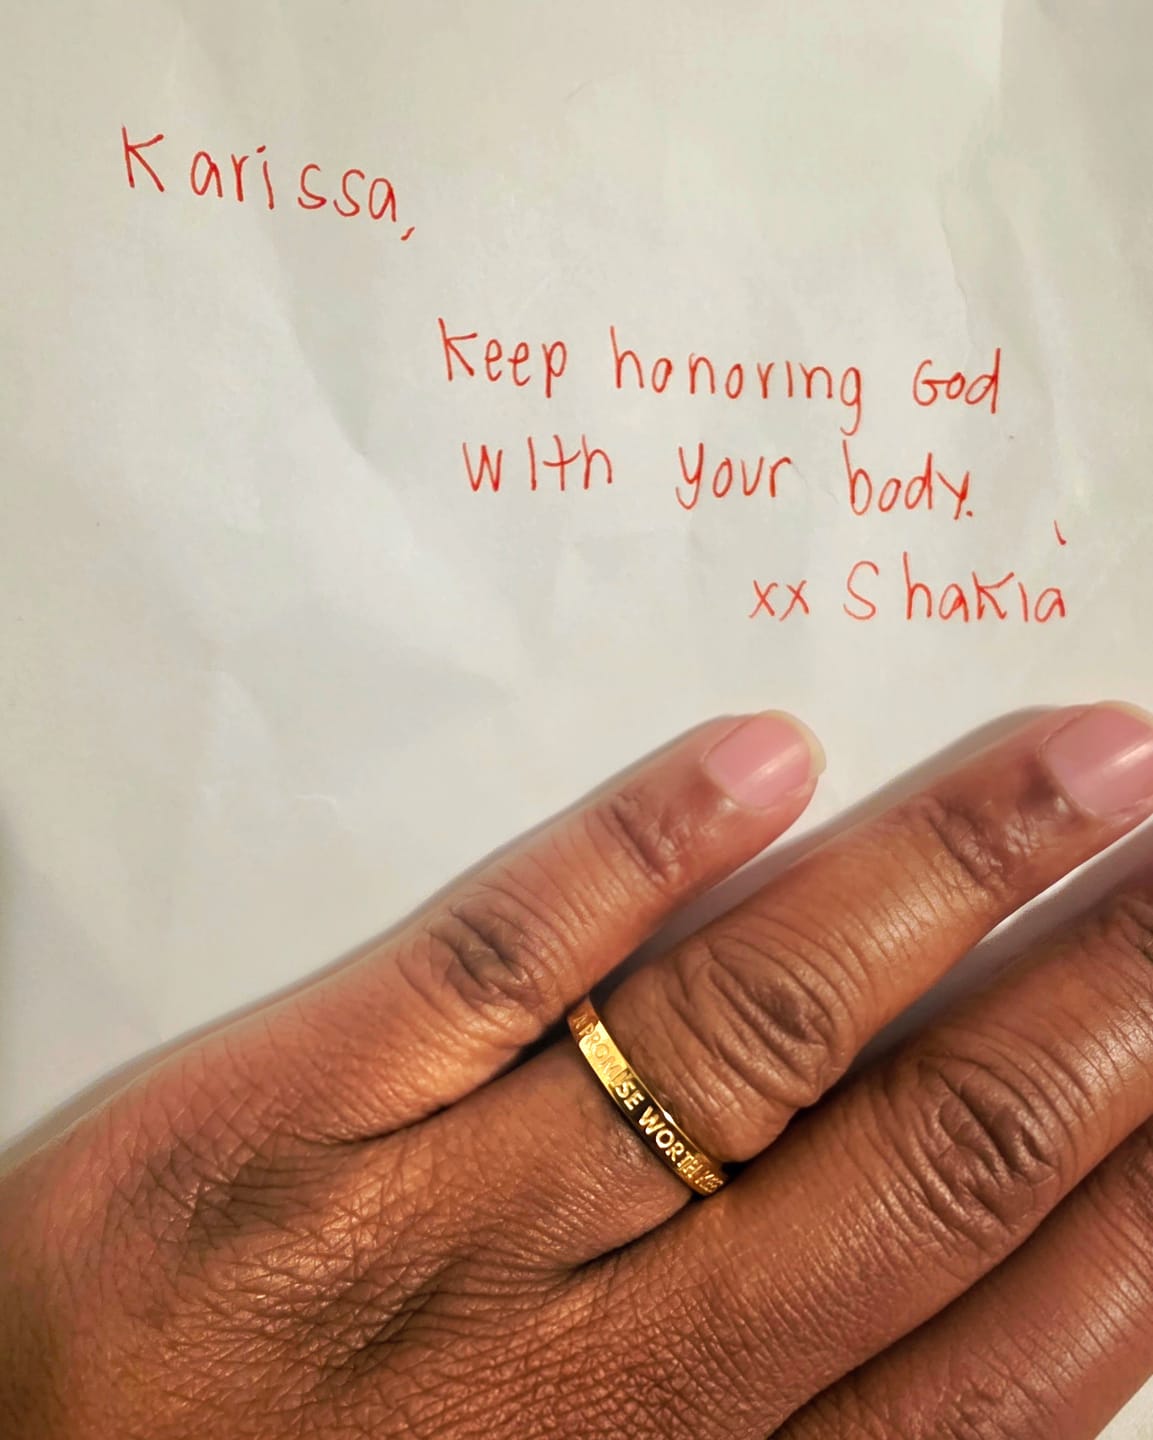 Karissa,
Keep honoring God
with your body.
xx Shakia
A PROMISE WORTH